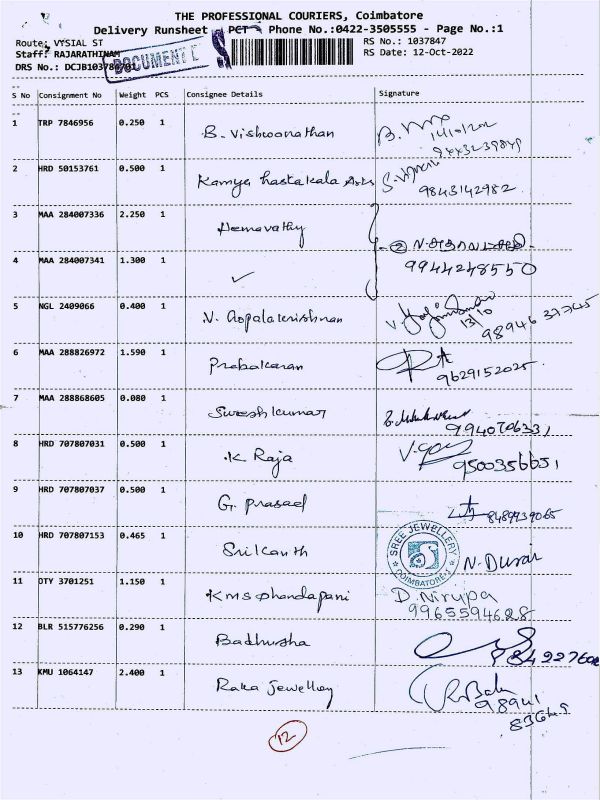 THE PROFESSIONAL COURIERS, Coimbatore
Delivery Runsheet - PCT - Phone No.:0422-3505555 - Page No.:1
Route: VYSIAL ST
RS No.: 1037847
Staff: RAJARATHINAM
RS Date: 12-Oct-2022
DRS No.: DCJB103784701
DOCUMENT
S No Consignment No Weight PCS Consignee Details Signature
1 TRP 7846956 0.250 1 B. Vishwanathan
9443239849
2 HRD 50153761 0.500 1 Kamya hastakala Arts
9843142982
3 MAA 284007336 2.250 1 Hemavathy
4 MAA 284007341 1.300 1 ✓
9944248550
5 NGL 2409066 0.400 1 N. Gopalakrishnan
13/10
98946 37745
6 MAA 288826972 1.590 1 Prabakaran
9629152025
7 MAA 288868605 0.080 1 Sureshkumar
9940706331
8 HRD 707807031 0.500 1 K Raja
9500356651
9 HRD 707807037 0.500 1 G. Prasad
8489939065
10 HRD 707807153 0.465 1 Srikanth
SREE JEWELLERY
COIMBATORE-1
N. Durai
11 OTY 3701251 1.150 1 KMS Dhandapani
D. Nirupa
9965594628
12 BLR 515776256 0.290 1 Badhusha
13 KMU 1064147 2.400 1 Raka Jewellery
98941
12